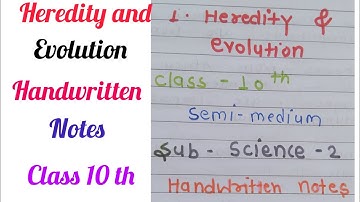 Heredity and
Evolution
Handwritten
Notes
Class 10 th
1. Heredity &
evolution
class - 10th
semi-medium
Sub - Science - 2
Handwritten notes